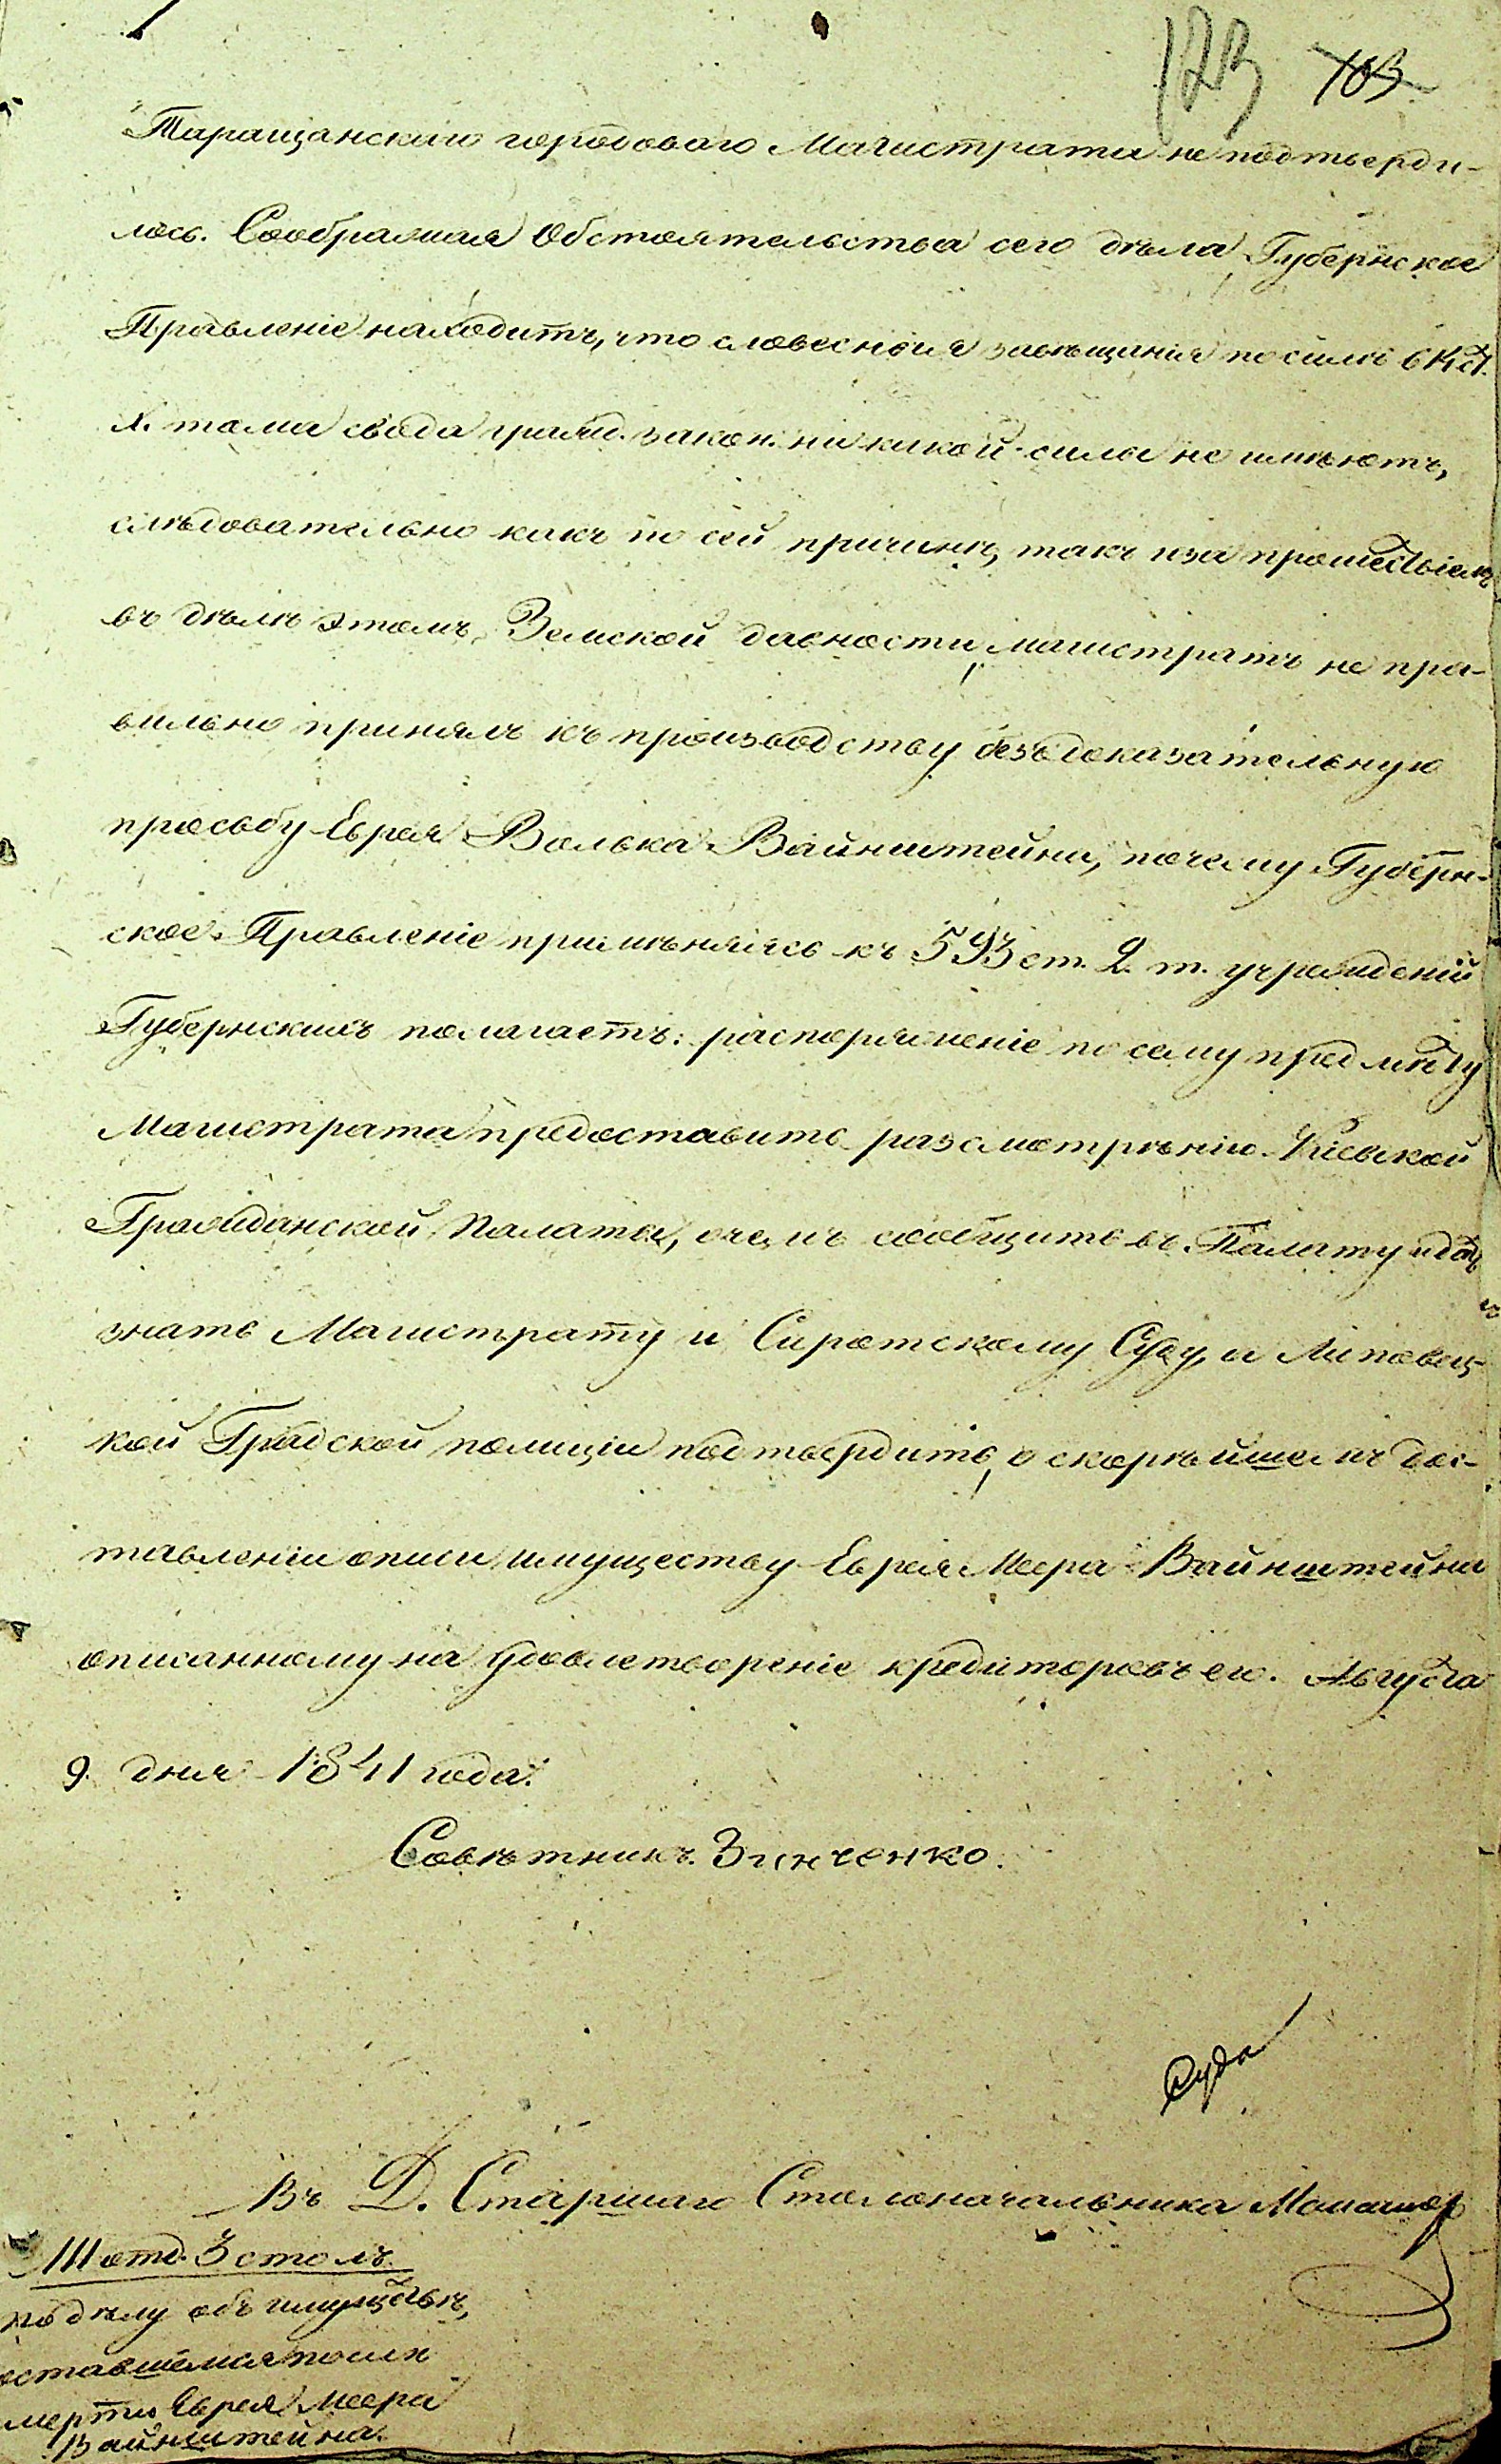 123 103
Таращанскаго городоваго Магистрата не подтверди-
лось. Соображая Обстоятельства сего дѣла Губернское
Правленіе находитъ, что словесныя завѣщанія по силѣ ст.
X. тома свода гражд. закон. ни какой силы не имѣютъ,
слѣдовательно какъ по сей причинѣ, такъ и за прошествіемъ
въ дѣлѣ этомъ, Земской давности, магистратъ не пра-
вильно принялъ къ производству бездоказательную
просьбу Еврея Волька Вайнштейна, почему Губерн-
ское Правленіе примѣняясь къ 593 ст. 2. т. учрежденій
Губернскихъ полагаетъ: распоряженіе по сему предмѣту
Магистрата предоставить разсмотрѣнію Кіевской
Гражданской Палаты, о чемъ сообщить въ Палату и дать
знать Магистрату и Сиротскому Суду, а Липовец-
кой Градской полиціи подтвердить, о скорѣйшемъ дос-
тавленіи описи имуществу Еврея Меера Вайнштейна
описанному на удовлетвореніе кредиторовъ его. Августа
9. дня 1841 года.
Совѣтникъ Зинченко.
Въ Д. Старшаго Столоначальника
III отд. 3 столъ
по дѣлу объ имуществѣ,
оставшемся послѣ
смерти Еврея Меера
Вайнштейна.